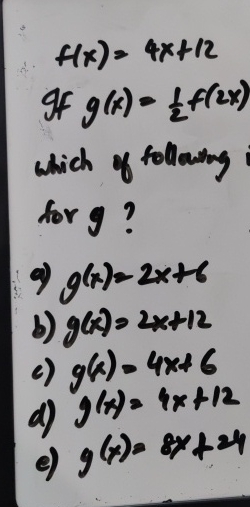 f(x) = 4x+12
If g(x) = ½ f(2x)
which of following
for g ?
a) g(x) = 2x+6
b) g(x) = 2x+12
c) g(x) = 4x+6
d) g(x) = 4x+12
e) g(x) = 8x+24